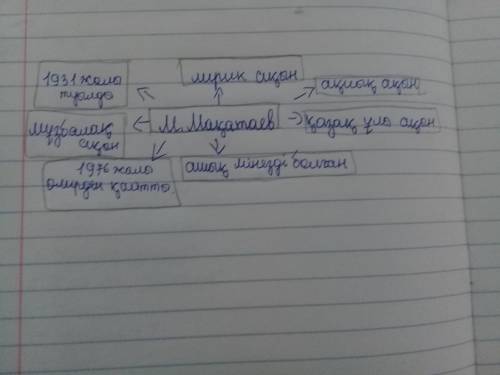 1931 жылы
туылды
лирик ақын
ақиық ақын
мұзбалақ
ақын
М. Мақатаев
қазақ ұлы ақын
1976 жылы
өмірден қайтты
ашық мінезді болған